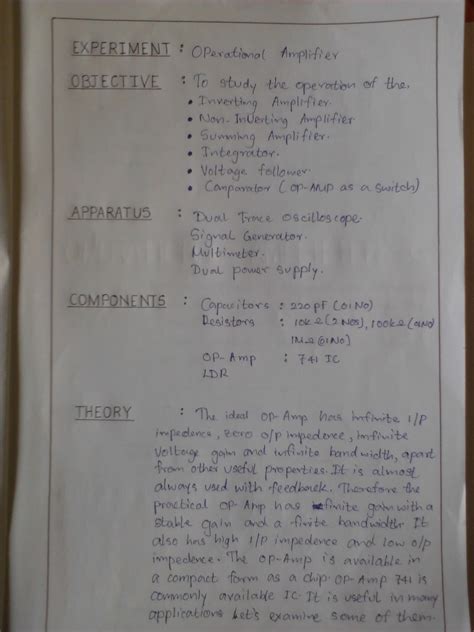 EXPERIMENT : Operational Amplifier
OBJECTIVE : To study the operation of the,
• Inverting Amplifier.
• Non-Inverting Amplifier
• Summing Amplifier.
• Integrator.
• Voltage follower.
• Comparator (OP-AMP as a switch)
APPARATUS : Dual Trace Oscilloscope.
Signal Generator.
Multimeter.
Dual power supply.
COMPONENTS : Capacitors : 220pf (01No)
Resistors : 10kΩ (2Nos), 100kΩ (01No)
1MΩ (01No)
OP-Amp : 741 IC
LDR
THEORY : The ideal OP-Amp has infinite I/P
impedence, zero o/p impedence, infinite
Voltage gain and infinite bandwidth, apart
from other useful properties. It is almost
always used with feedback. Therefore the
practical OP-Amp has finite gain with a
stable gain and a finite bandwidth. It
also has high I/P impedence and low o/p
impedence. The OP-Amp is available in
a compact form as a chip. OP-Amp 741 is
commonly available IC. It is useful in many
applications Let's examine some of them.